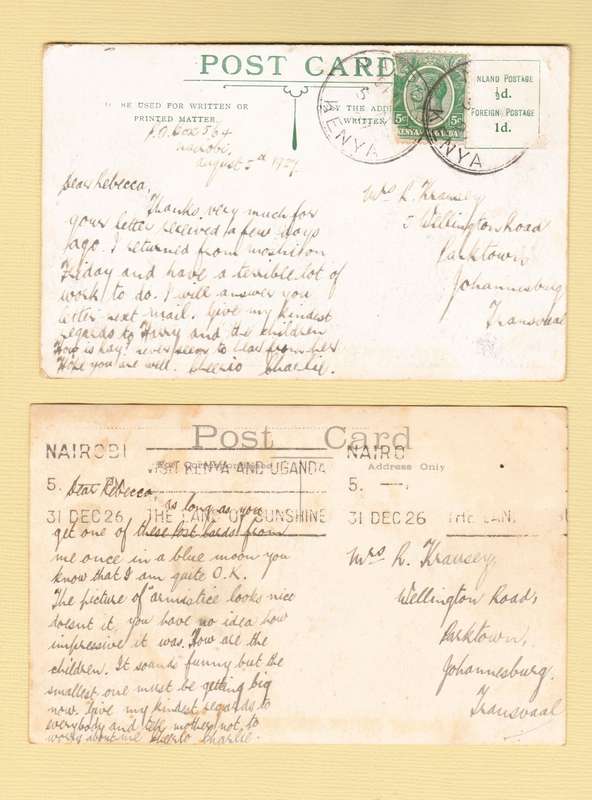 POST CARD
BE USED FOR WRITTEN OR
PRINTED MATTER.
BY THE ADD
WRITTEN
5c
5c
KENYA
KENYA
KENYA
NLAND POSTAGE
½d.
FOREIGN POSTAGE
1d.
P.O. Box 564
Nairobi,
August
Dear Rebecca,
Thanks very much for
your letter recieved a few days
ago. I returned from on
Friday and have a terrible lot of
work to do. I will answer you
letter next mail. Give my kindest
regards to Harry and the children
How is Kay? never seems to hear from her
Hope you are well. Cheerio Charlie.
Mrs R. Krausey
5 Wellington Road
Parktown
Johannesburg
Transvaal
Post Card
NAIROBI
VISIT KENYA AND UGANDA
5.
31 DEC 26
THE LAND OF SUNSHINE
NAIRO
Address Only
5.
31 DEC 26
THE LAN
Dear Rebecca,
As long as you
get one of these post cards from
me once in a blue moon you
know that I am quite O.K.
The picture of "armistice looks nice
doesnt it, you have no idea how
impressive it was. How are the
children. It sounds funny but the
smallest one must be getting big
now. Give my kindest regards to
everybody and tell mother not to
worry about me Cheerio Charlie.
Mrs R. Krausey,
Wellington Road,
Parktown,
Johannesburg.
Transvaal